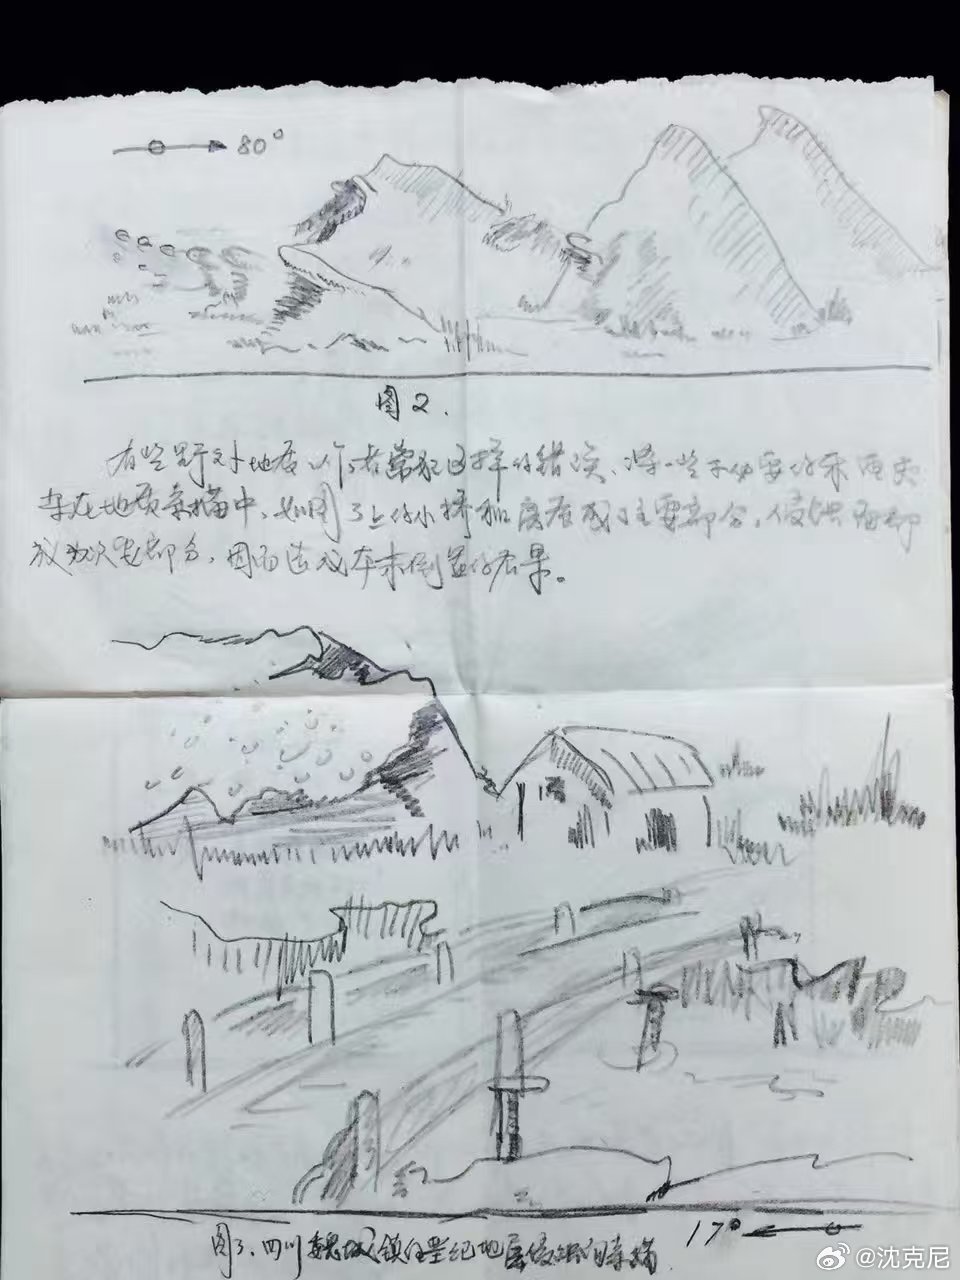 80°
图2.
有些野外地质工作者常犯这样的错误，将一些不必要的东西夹
杂在地质素描中，如图3上的小桥和房屋成了主要部分，侵蚀
放为次要部分，因而造成本末倒置的后果。
17°
图3、四川魏城镇白垩纪地层侵蚀的素描
@沈克尼